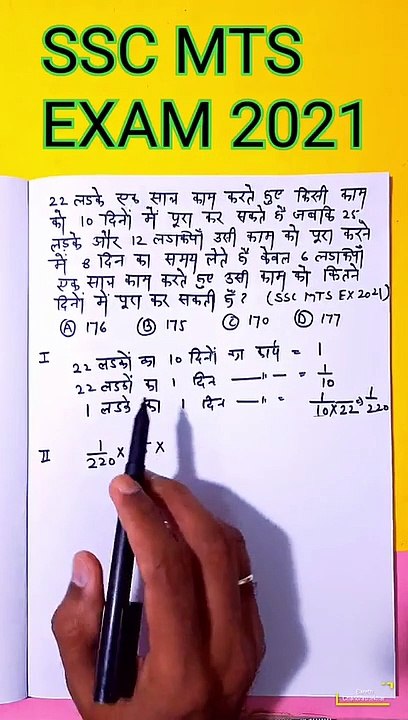 SSC MTS
EXAM 2021
22 लडके एक साथ काम करते हुए किसी काम
को 10 दिनों में पूरा कर सकते हैं जबकि 25
लड़के और 12 लडकियाँ उसी काम को पूरा करने
में 8 दिन का समय लेते हैं केवल 6 लडकियाँ
एक साथ काम करते हुए उसी काम को कितने
दिनों में पूरा कर सकती हैं? (SSC MTS EX 2021)
Ⓐ 176 Ⓑ 175 Ⓒ 170 Ⓓ 177
I 22 लडकों का 10 दिनों का कार्य = 1
22 लडकों का 1 दिन —〃— = 1/10
1 लडके का 1 दिन —〃— = 1/10×22 ⇒ 1/220
II 1/220 × ×